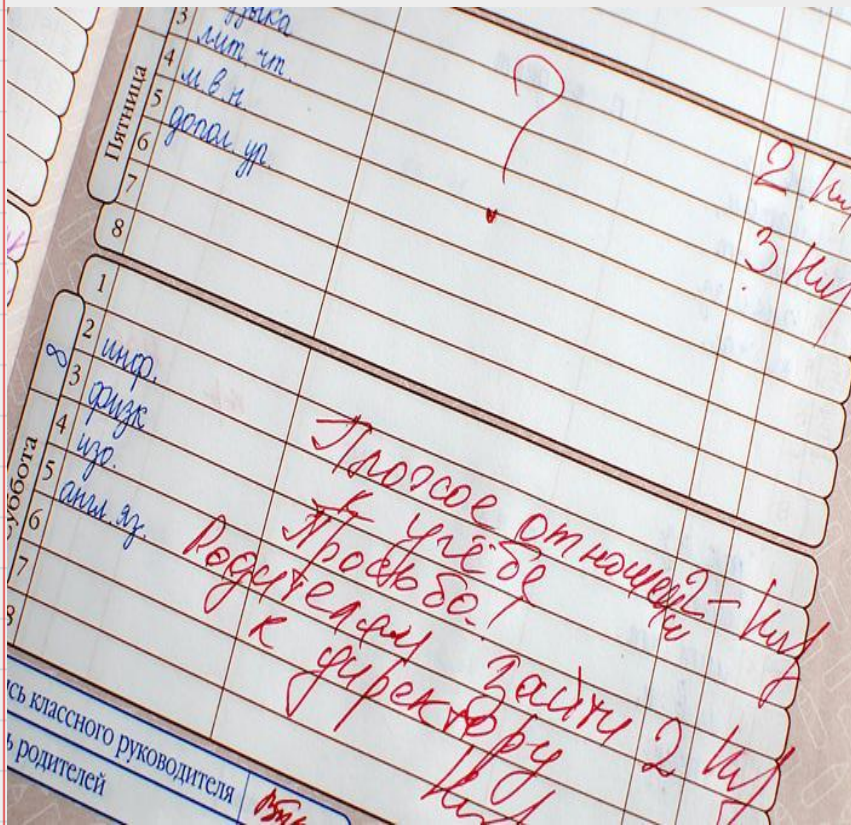 Пятница
3 музыка
4 лит чт.
5 м в н
6 допол. ур.
7
8
?
2
3
1
2 инф.
3 физк
4 изо.
5 англ. яз.
6
7
8
8
Суббота
Плохое отношение 2-
к учёбе
Просьба!
Родителям зайти 2
к директору
сь классного руководителя
ь родителей